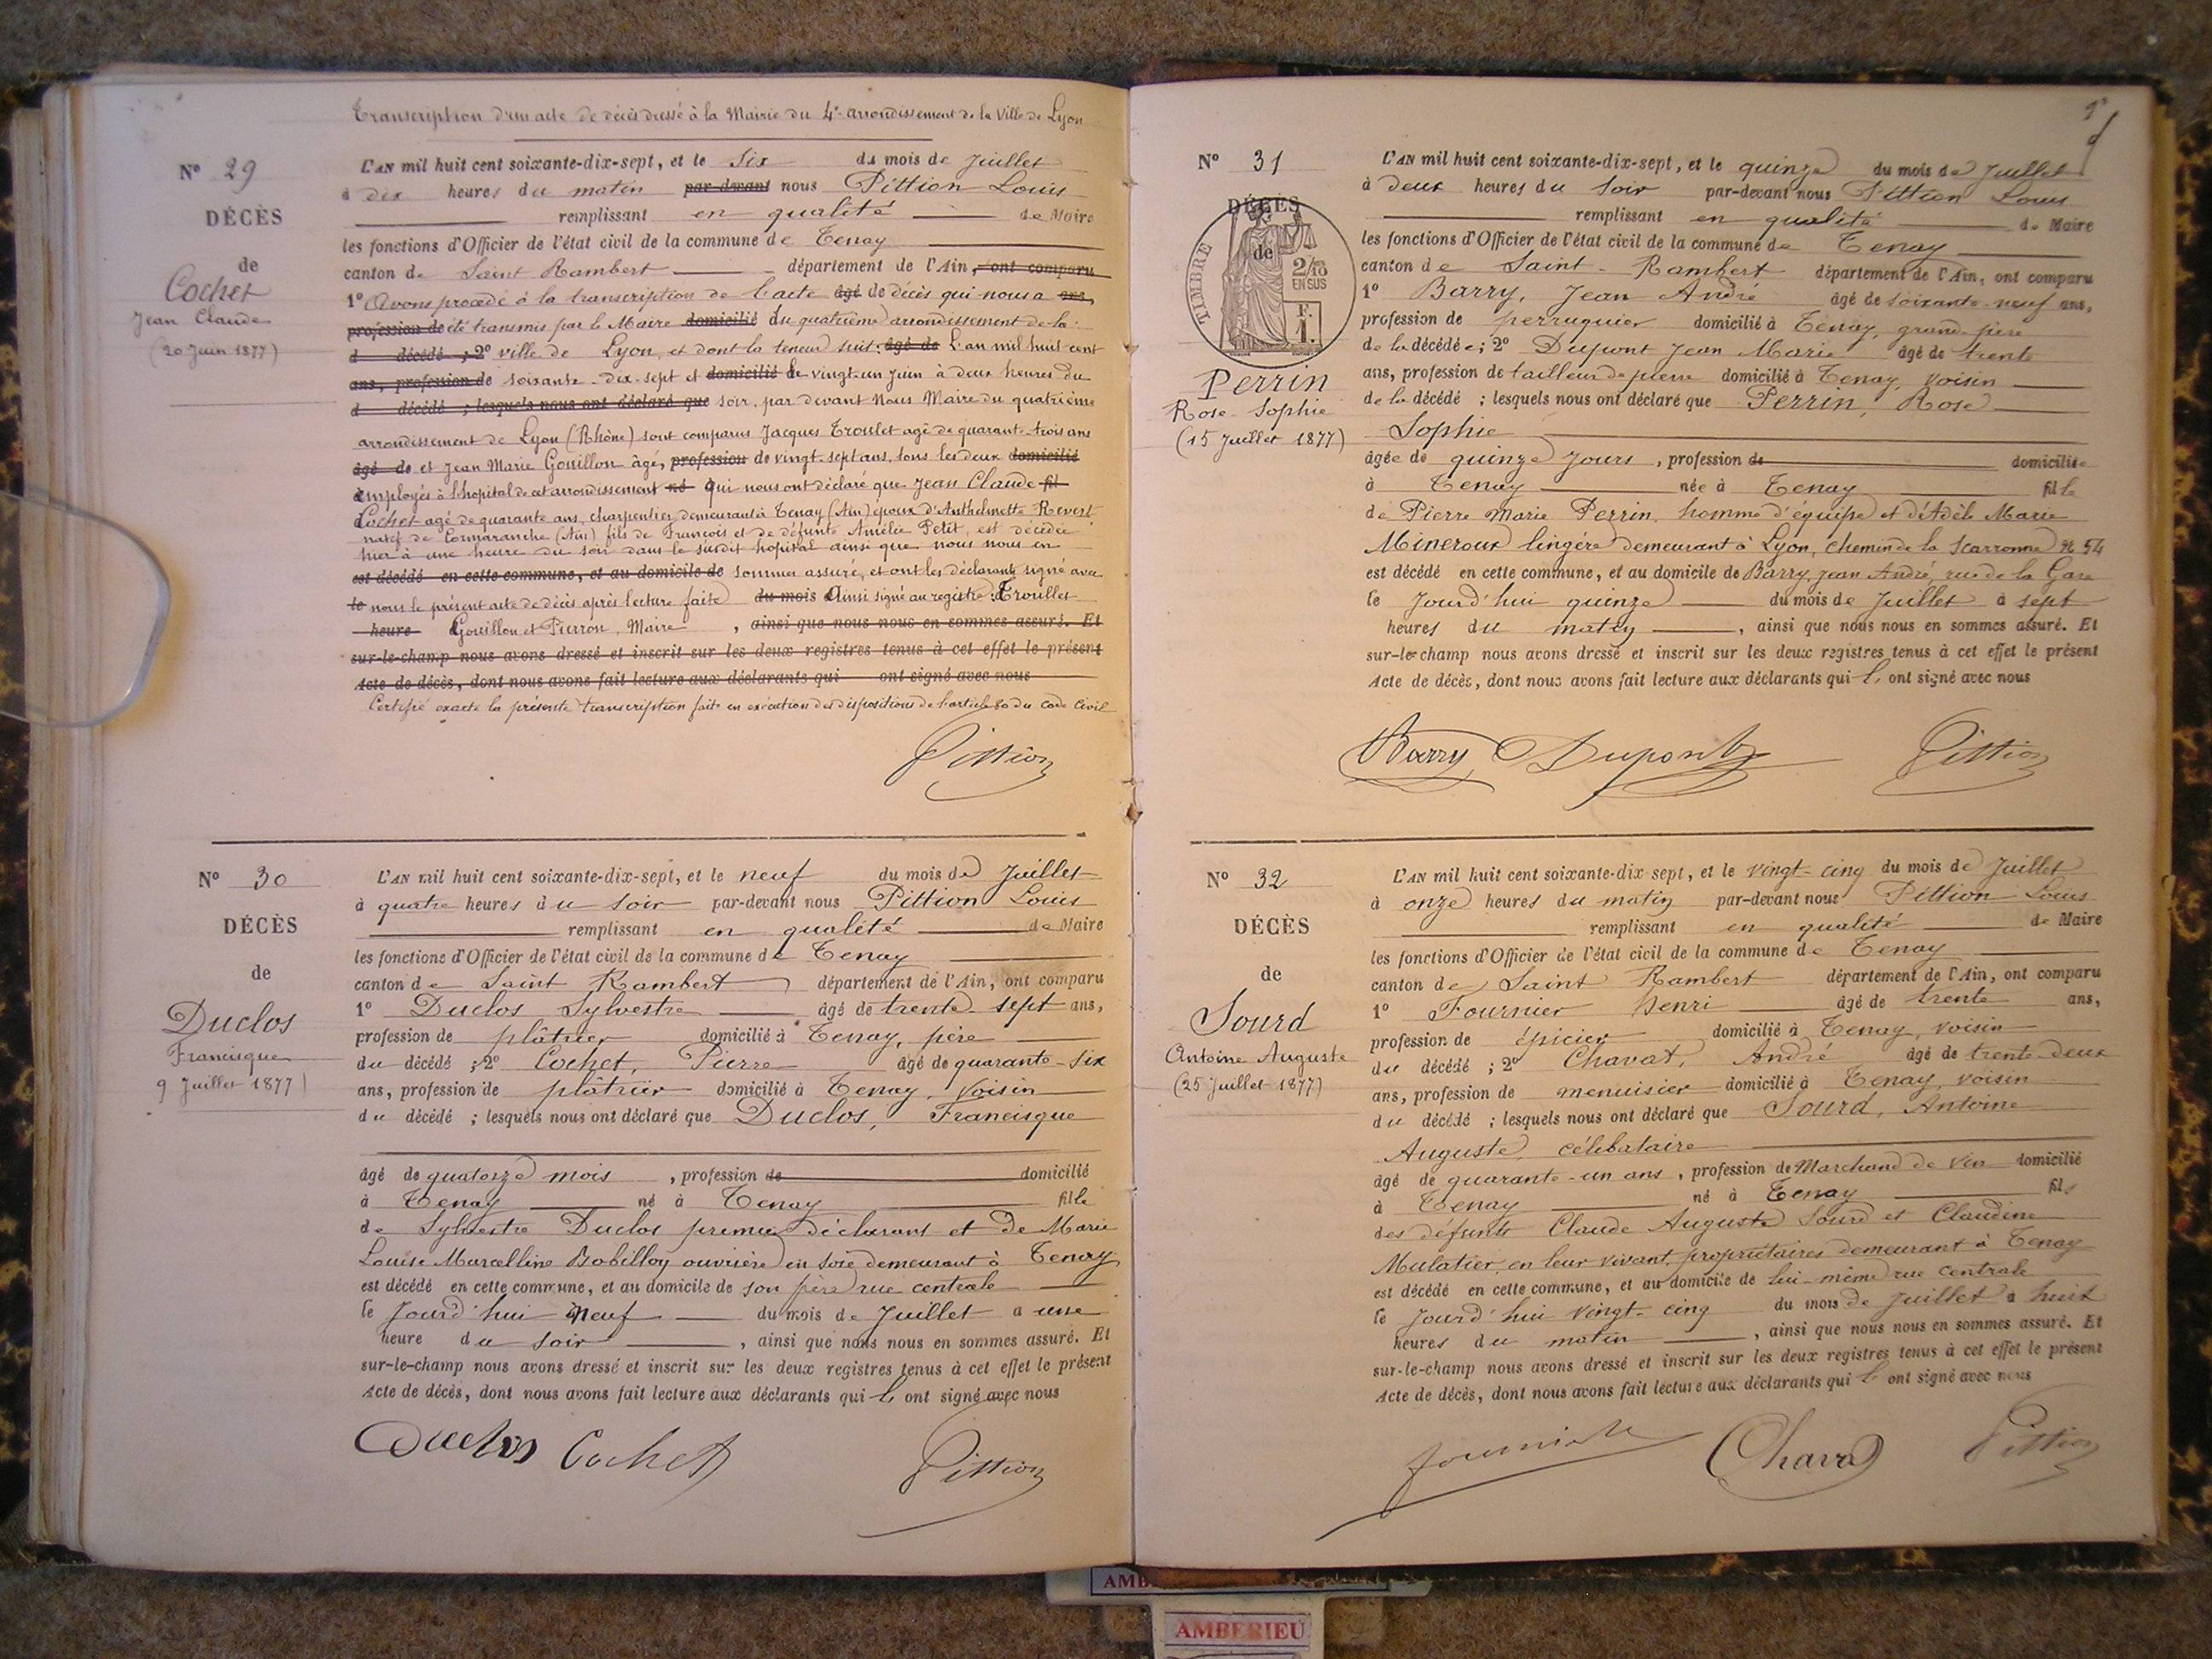 Transcription d'un acte de décès dressé à la Mairie du 4e arrondissement de la Ville de Lyon
N° 29
DÉCÈS
de
Cochet
Jean Claude
(20 Juin 1877)
L'AN mil huit cent soixante-dix-sept, et le Six du mois de Juillet
à dix heures du matin par-devant nous Pittion Louis
remplissant en qualité de Maire
les fonctions d'Officier de l'état civil de la commune de Tenay
canton de Saint Rambert département de l'Ain, ont comparu
1° Avons procédé à la transcription de l'acte âgé de décès qui nous a ans,
profession de été transmis par le Maire domicilié du quatrième arrondissement de la
d décédé ; 2° ville de Lyon, et dont la teneur suit : âgé de L'an mil huit cent
ans, profession de soixante-dix-sept et domicilié le vingt-un Juin à deux heures du
d décédé ; lesquels nous ont déclaré que soir, par devant Nous Maire du quatrième
arrondissement de Lyon (Rhône) sont comparus Jacques Troulet agé de quarante-trois ans
âgé de et Jean Marie Gouillon âgé, profession de vingt-sept ans, tous les deux domicilié
employés à l'hopital de cet arrondissement né qui nous ont déclaré que Jean Claude fil
Cochet agé de quarante ans, charpentier demeurant à Tenay (Ain) époux d'Anthelmette Revert
natif de Cormaranche (Ain) fils de François et de défunte Amélie Petit, est décédé
hier à une heure du soir dans le susdit hopital ainsi que nous nous en
est décédé en cette commune, et au domicile de sommes assuré, et ont les déclarants signé avec
le nous le présent acte de décès après lecture faite du mois Ainsi signé au registre : Trouillet
heure Gouillon et Pierron, Maire , ainsi que nous nous en sommes assuré. Et
sur-le-champ nous avons dressé et inscrit sur les deux registres tenus à cet effet le présent
Acte de décès, dont nous avons fait lecture aux déclarants qui ont signé avec nous
Certifié exacte la présente transcription faite en exécution des dispositions de l'article 80 du code civil
Pittion
N° 30
DÉCÈS
de
Duclos
Francisque
9 Juillet 1877)
L'AN mil huit cent soixante-dix-sept, et le neuf du mois de Juillet
à quatre heures du soir par-devant nous Pittion Louis
remplissant en qualité de Maire
les fonctions d'Officier de l'état civil de la commune de Tenay
canton de Saint Rambert département de l'Ain, ont comparu
1° Duclos Sylvestre âgé de trente-sept ans,
profession de plâtrier domicilié à Tenay, père
du décédé ; 2° Cochet, Pierre âgé de quarante-six
ans, profession de plâtrier domicilié à Tenay, voisin
du décédé ; lesquels nous ont déclaré que Duclos, Francisque
âgé de quatorze mois , profession de domicilié
à Tenay né à Tenay fils
de Sylvestre Duclos premier déclarant et de Marie
Louise Marcelline Bobillon ouvrière en soie demeurant à Tenay
est décédé en cette commune, et au domicile de son père rue centrale
le Jourd'hui neuf du mois de Juillet a une
heure du soir , ainsi que nous nous en sommes assuré. Et
sur-le-champ nous avons dressé et inscrit sur les deux registres tenus à cet effet le présent
Acte de décès, dont nous avons fait lecture aux déclarants qui l' ont signé avec nous
Duclos Cochet Pittion
N° 31
TIMBRE
DÉCÈS
de
2/10 EN SUS
F. 1.
Perrin
Rose-Sophie
(15 Juillet 1877)
L'AN mil huit cent soixante-dix-sept, et le quinze du mois de Juillet
à deux heures du soir par-devant nous Pittion Louis
remplissant en qualité de Maire
les fonctions d'Officier de l'état civil de la commune de Tenay
canton de Saint-Rambert département de l'Ain, ont comparu
1° Barry, Jean André âgé de soixante-neuf ans,
profession de perruquier domicilié à Tenay, grand-père
de la décédée ; 2° Dupont Jean Marie âgé de trente
ans, profession de tailleur de pierre domicilié à Tenay, voisin
de la décédé ; lesquels nous ont déclaré que Perrin, Rose
Sophie
âgée de quinze jours , profession de domiciliée
à Tenay née à Tenay fille
de Pierre Marie Perrin, homme d'équipe et d'Adèle Marie
Mineroux lingère demeurant à Lyon, chemin de la Scarronne N° 54
est décédé en cette commune, et au domicile de Barry, Jean André, rue de la Gare
le Jourd'hui quinze du mois de Juillet à sept
heures du matin , ainsi que nous nous en sommes assuré. Et
sur-le-champ nous avons dressé et inscrit sur les deux registres tenus à cet effet le présent
Acte de décès, dont nous avons fait lecture aux déclarants qui l' ont signé avec nous
Barry Dupont Pittion
N° 32
DÉCÈS
de
Sourd
Antoine Auguste
(25 Juillet 1877)
L'AN mil huit cent soixante-dix-sept, et le vingt-cinq du mois de Juillet
à onze heures du matin par-devant nous Pittion Louis
remplissant en qualité de Maire
les fonctions d'Officier de l'état civil de la commune de Tenay
canton de Saint Rambert département de l'Ain, ont comparu
1° Fournier Henri âgé de trente ans,
profession de épicier domicilié à Tenay, voisin
du décédé ; 2° Chavat, André âgé de trente-deux
ans, profession de menuisier domicilié à Tenay, voisin
du décédé ; lesquels nous ont déclaré que Sourd, Antoine
Auguste, célibataire
âgé de quarante-un ans , profession de Marchand de vin domicilié
à Tenay né à Tenay fils
des défunts Claude Auguste Sourd et Claudine
Mulatier, en leur vivant, propriétaires demeurant à Tenay
est décédé en cette commune, et au domicile de lui-même rue centrale
le Jourd'hui vingt-cinq du mois de Juillet à huit
heures du matin , ainsi que nous nous en sommes assuré. Et
sur-le-champ nous avons dressé et inscrit sur les deux registres tenus à cet effet le présent
Acte de décès, dont nous avons fait lecture aux déclarants qui l' ont signé avec nous
Fournier Chavat Pittion
AMBERIEU